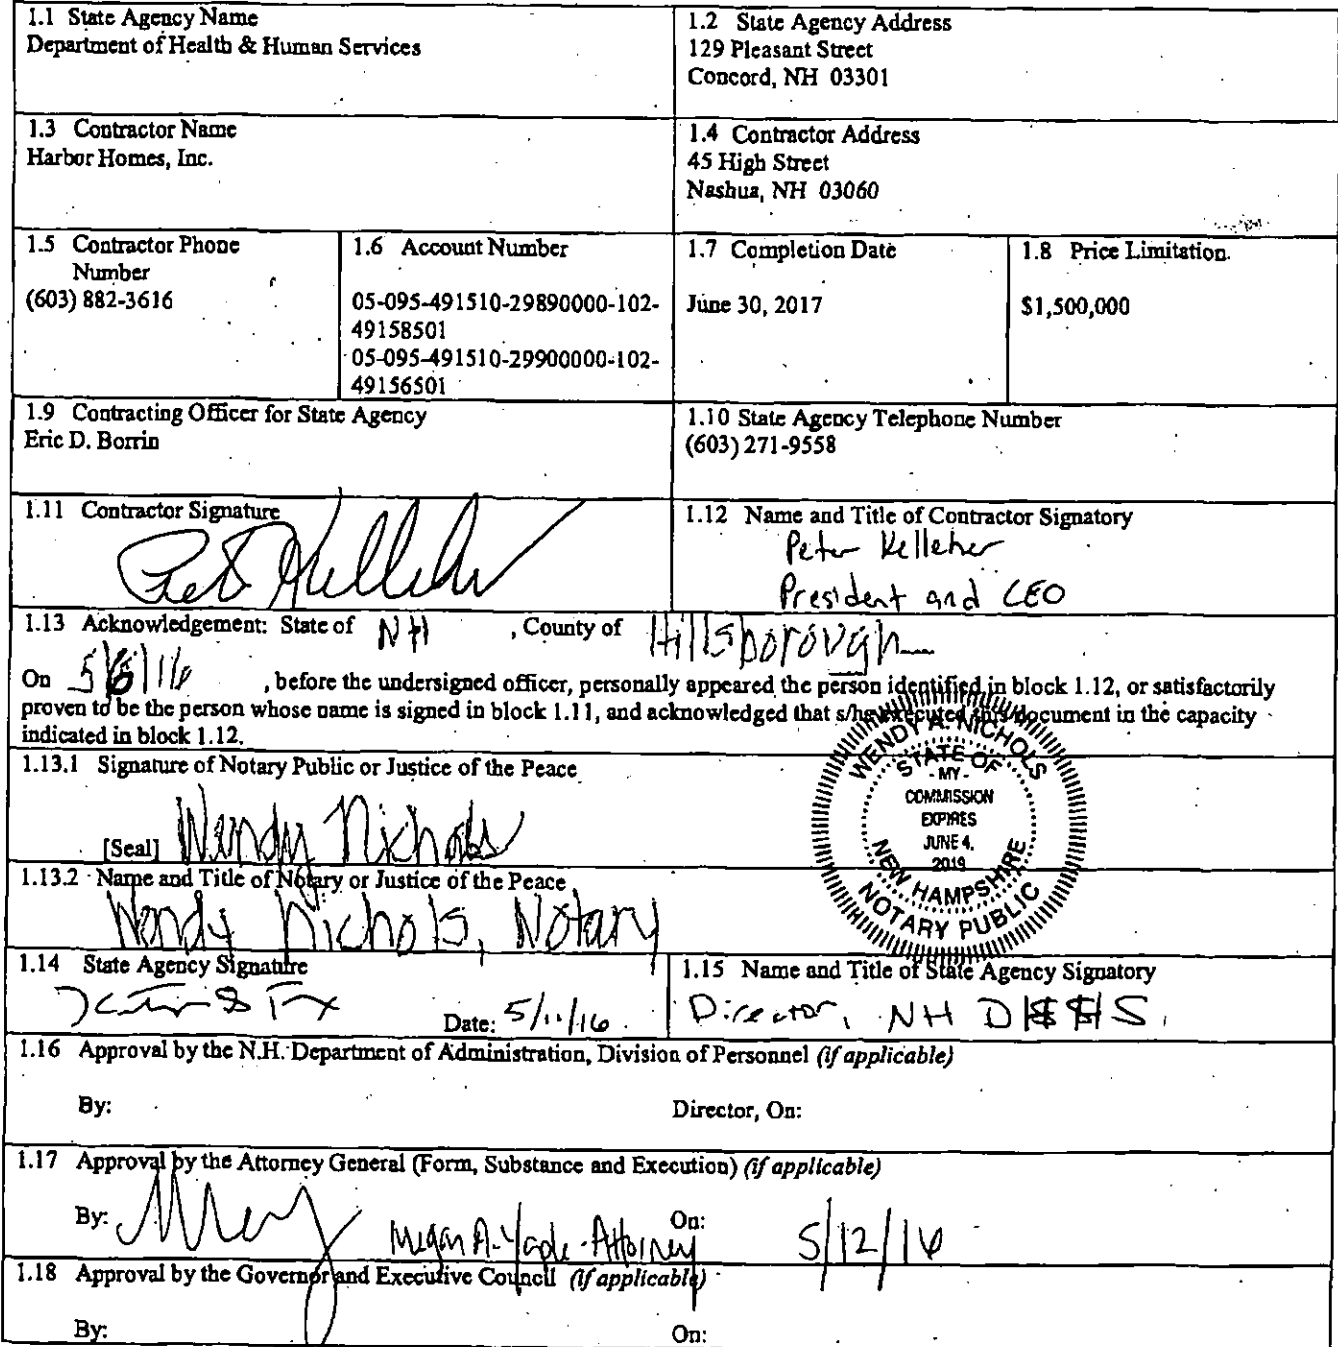 1.1 State Agency Name
Department of Health & Human Services
1.2 State Agency Address
129 Pleasant Street
Concord, NH 03301
1.3 Contractor Name
Harbor Homes, Inc.
1.4 Contractor Address
45 High Street
Nashua, NH 03060
1.5 Contractor Phone
Number
(603) 882-3616
1.6 Account Number
05-095-491510-29890000-102-
49158501
05-095-491510-29900000-102-
49156501
1.7 Completion Date
June 30, 2017
1.8 Price Limitation.
$1,500,000
1.9 Contracting Officer for State Agency
Eric D. Borrin
1.10 State Agency Telephone Number
(603) 271-9558
1.11 Contractor Signature
1.12 Name and Title of Contractor Signatory
Peter Kelleher
President and CEO
1.13 Acknowledgement: State of NH , County of Hillsborough
On 5/6/16 , before the undersigned officer, personally appeared the person identified in block 1.12, or satisfactorily
proven to be the person whose name is signed in block 1.11, and acknowledged that s/he executed this document in the capacity
indicated in block 1.12.
1.13.1 Signature of Notary Public or Justice of the Peace
[Seal] Wendy Nichols
WENDY A. NICHOLS
STATE OF
- MY -
COMMISSION
EXPIRES
JUNE 4,
2019
NEW HAMPSHIRE
NOTARY PUBLIC
1.13.2 Name and Title of Notary or Justice of the Peace
Wendy Nichols, Notary
1.14 State Agency Signature
Date: 5/11/16
1.15 Name and Title of State Agency Signatory
Director, NH
1.16 Approval by the N.H. Department of Administration, Division of Personnel (if applicable)
By: Director, On:
1.17 Approval by the Attorney General (Form, Substance and Execution) (if applicable)
By: Megan A. Yaple - Attorney On: 5/12/16
1.18 Approval by the Governor and Executive Council (if applicable)
By: On: